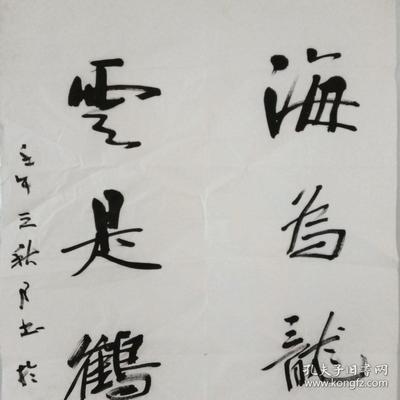 海为龍
雲是鶴
壬午三秋月书於
孔夫子旧书网
www.kongfz.com